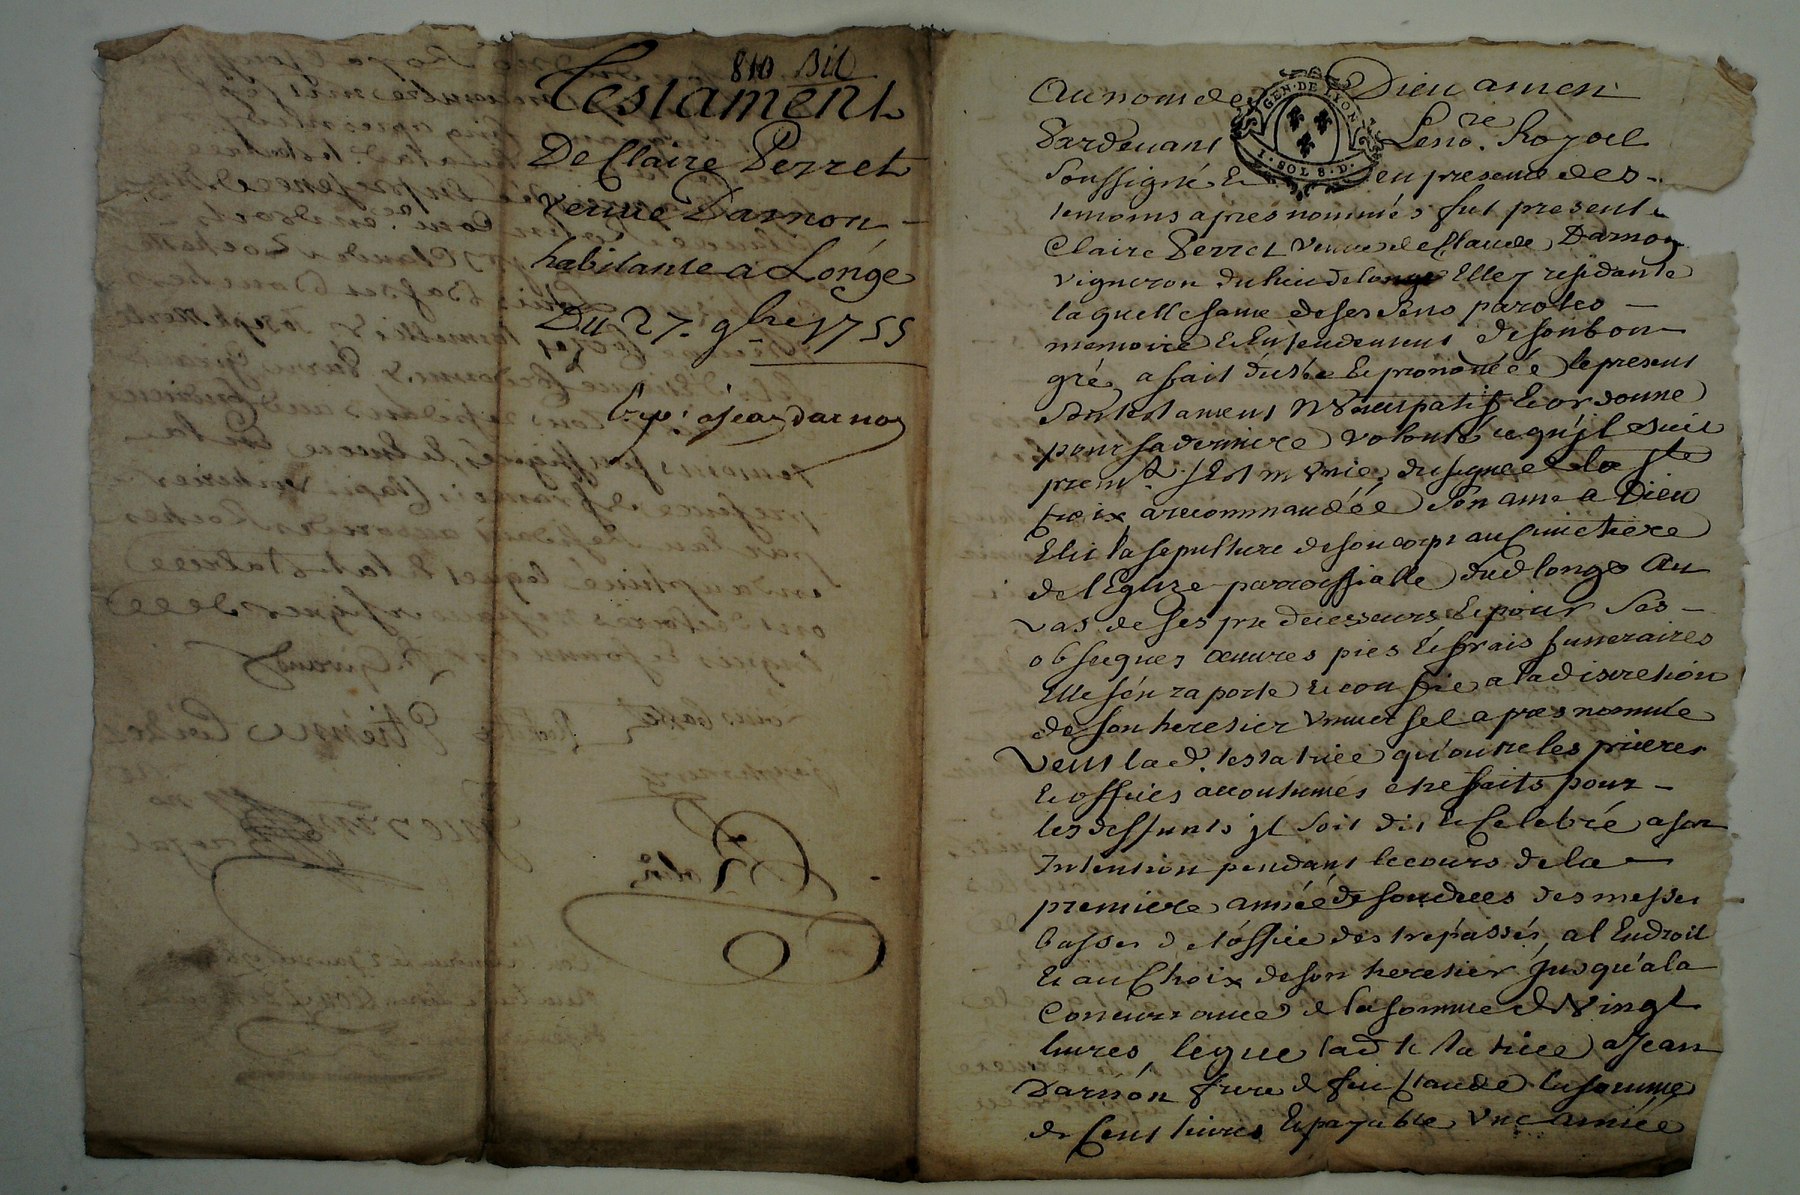 810 Bil
Testament
De Claire Perret
veuue Darnon
habitante a Longe
Du 27. 9bre 1755
Exp: a Jean Darnon
Rolin
Au nom de Dieu amen
GEN. DE LYON
1. SOL 8. D.
Pardeuant Le no.re Royal
Soussigné Et en presence des
temoins apres nommés fut presente
Claire Perret veuue de Claude Darnon
vigneron du lieu de longe Elle y residante
laquelle saine de ses sens paroles
memoire Et Entendement de son bon
gré, a fait dicté Et prononcéé le present
son testament Nuncupatif Et ordonne
pour sa derniere volonté ce qu'jl suit
prem.t s'est munie du signe de la Ste
Croix a recommandéé son ame a Dieu
Elit la sepulture de son corps au Cimetiere
de l'Eglize parroissialle dud longe Au
vas de ses predecesseurs Et pour ses
obseques œuures pies Et frais funeraires
Elle s'en raporte Et confie a la discretion
de son heretier vniuersel apres nommé
Veut la d. testatrice qu'outre les prieres
Et offices accoutumés etre faits pour
les deffunts jl soit dit Et Celebré a son
Intention pendant le cours de la
premiere année de son deces des messes
basses de l'office des trepassés, a l'Endroit
Et au Choix de son heretier jusqu'a la
Concurrance de la somme de vingt
liures, legue lad testatrice a Jean
Darnon frere de feu Claude la somme
de Cent liures Et payable vne année